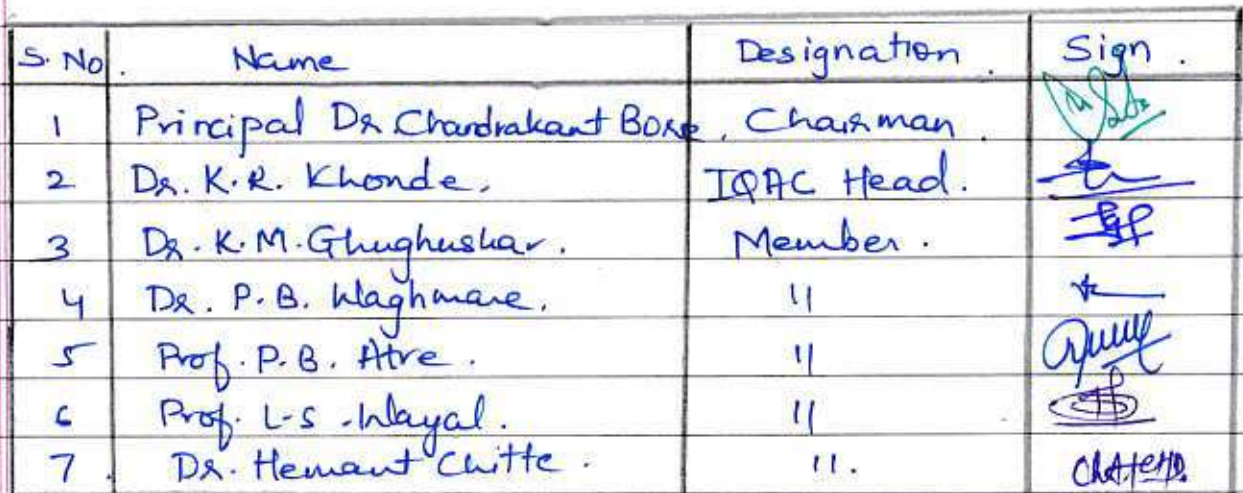 S. No. Name Designation. Sign.
1 Principal Dr Chandrakant Borse. Chairman.
2 Dr. K.R. Khonde. IQAC Head.
3 Dr. K.M. Ghughuskar. Member.
4 Dr. P.B. Waghmare. 11
5 Prof. P.B. Atre. 11
6 Prof. L-S. Wayal. 11
7. Dr. Hemant Chitte. 11.